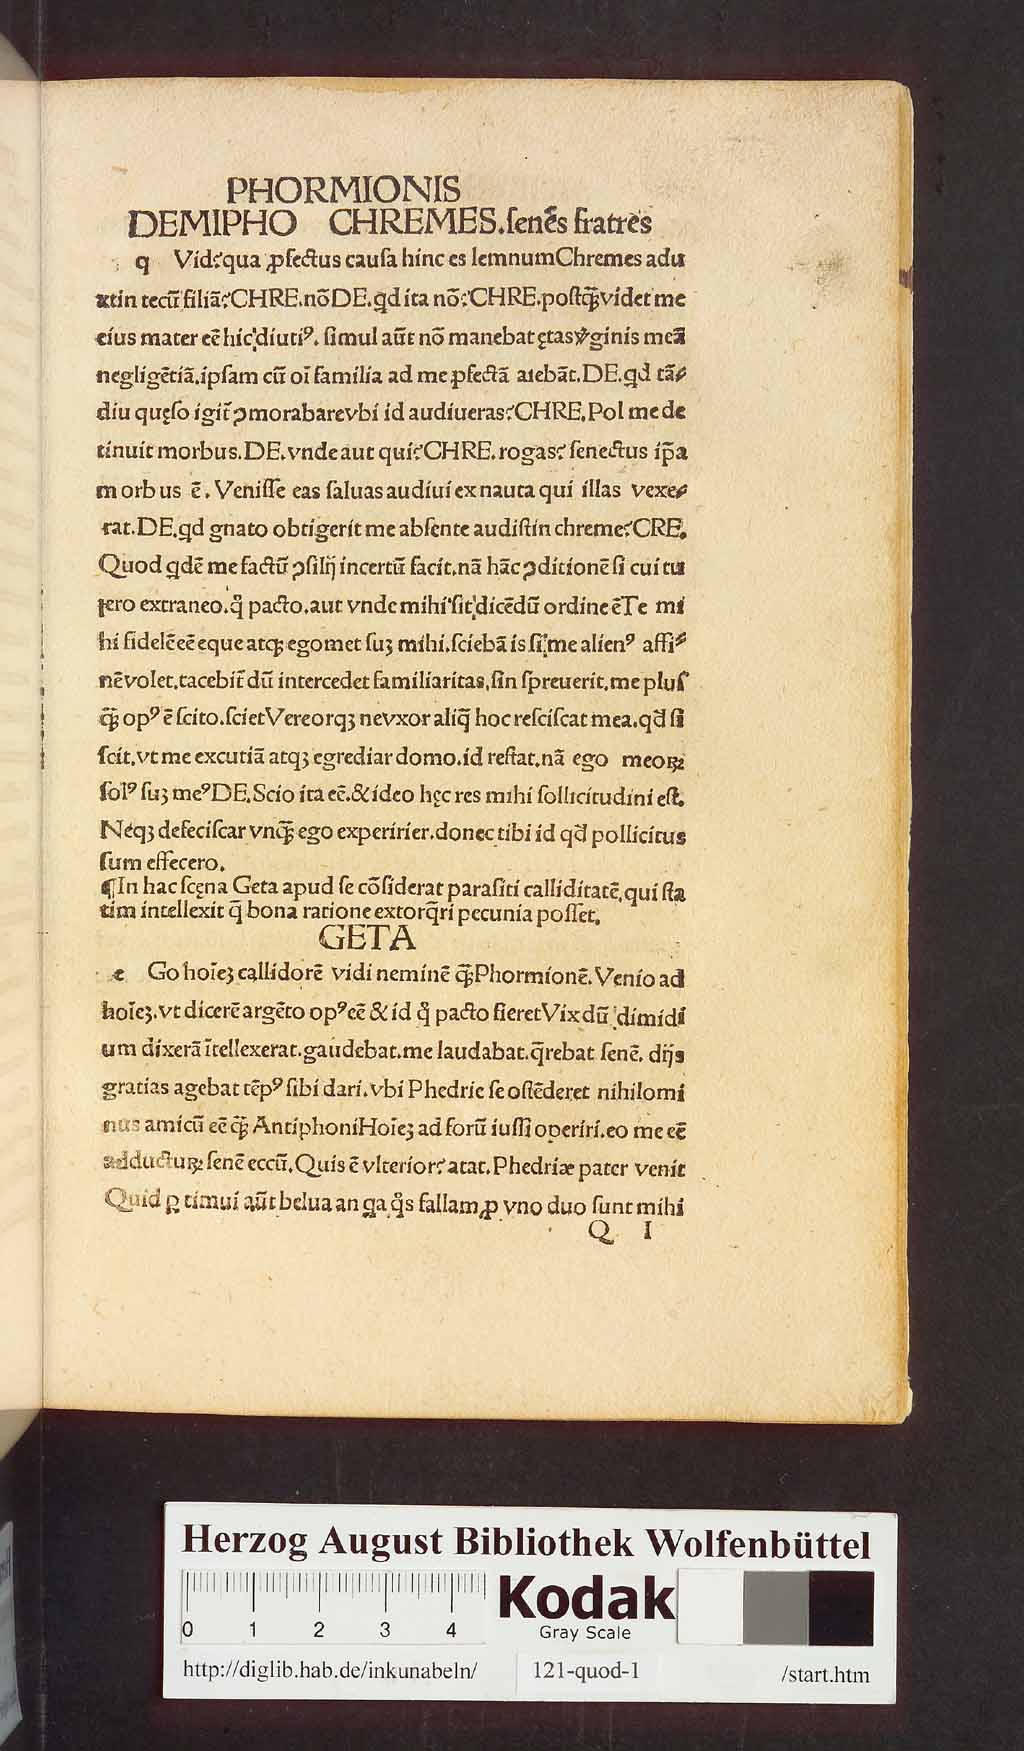 PHORMIONIS
DEMIPHO CHREMES.ſenēs fratres
q Vid?qua ꝓfectus cauſa hinc es lemnumChremes adu
xtin tecū filiā?CHRE.nōDE.qd ita nō?CHRE.poſtq̄ꝫ videt me
eius mater eē hic diutiꝰ. ſimul aūt nō manebat ętas v̓ginis meā
negligētiā.ipſam cū oī familia ad me ꝓfectā aiebāt.DE.qd tā⸗
diu quęſo igit̄ ꝯmorabare vbi id audiueras?CHRE.Pol me de
tinuit morbus.DE.vnde aut qui?CHRE.rogas? ſenectus ip̄a
morbus ē. Veniſſe eas ſaluas audiui ex nauta qui illas vexe⸗
rat.DE.qd gnato obtigerit me abſente audiſtin chreme?CRE.
Quod qdē me factū ꝯſilij incertū facit.nā hāc ꝯditionē ſi cui tu
lero extraneo.q̄ pacto.aut vnde mihi ſit dicēdū ordine ēTe mi
hi fidelē eē eque atqꝫ egomet ſuꝫ mihi.ſciebā is ſi me alienꝰ affi⸗
nē volet.tacebit̄ dū intercedet familiaritas.ſin ſpreuerit.me pluſ
q̄ꝫ opꝰ ē ſcito.ſcietVereorqꝫ ne vxor aliq̄ hoc reſciſcat mea.qđ ſi
ſcit.vt me excutiā atqꝫ egrediar domo.id reſtat.nā ego meoꝝ
ſolꝰ ſuꝫ meꝰDE.Scio ita eē.&ideo hęc res mihi ſollicitudini eſt.
Neqꝫ defeciſcar vnq̄ꝫ ego experirier.donec tibi id qđ pollicitus
ſum effecero.
¶In hac ſcęna Geta apud ſe cōſiderat paraſiti calliditatē.qui ſta
tim intellexit q̄ bona ratione extorq̄ri pecunia poſſet.
GETA
e Go hoīeꝫ callidorē vidi neminē q̄ꝫPhormionē.Venio ad
hoīeꝫ.vt dicerē argēto opꝰ eē & id q̄ pacto fieretVix dū dimidi
um dixerā ītellexerat.gaudebat.me laudabat.q̄rebat ſenē. dijs
gratias agebat tēpꝰ ſibi dari.vbi Phedrie ſe oſtēderet nihilomi
nus amicū eē q̄ꝫ AntiphoniHoīeꝫ ad forū iuſſi operiri.eo me eē
adductuꝝ ſenē eccū.Quis ē vlterior? atat.Phedriæ pater venit
Quid ꝑtimui aūt belua an qa q̄s fallam ꝓ vno duo ſunt mihi
Q I
Herzog August Bibliothek Wolfenbüttel
0 1 2 3 4
Kodak
Gray Scale
http://diglib.hab.de/inkunabeln/ 121-quod-1 /start.htm